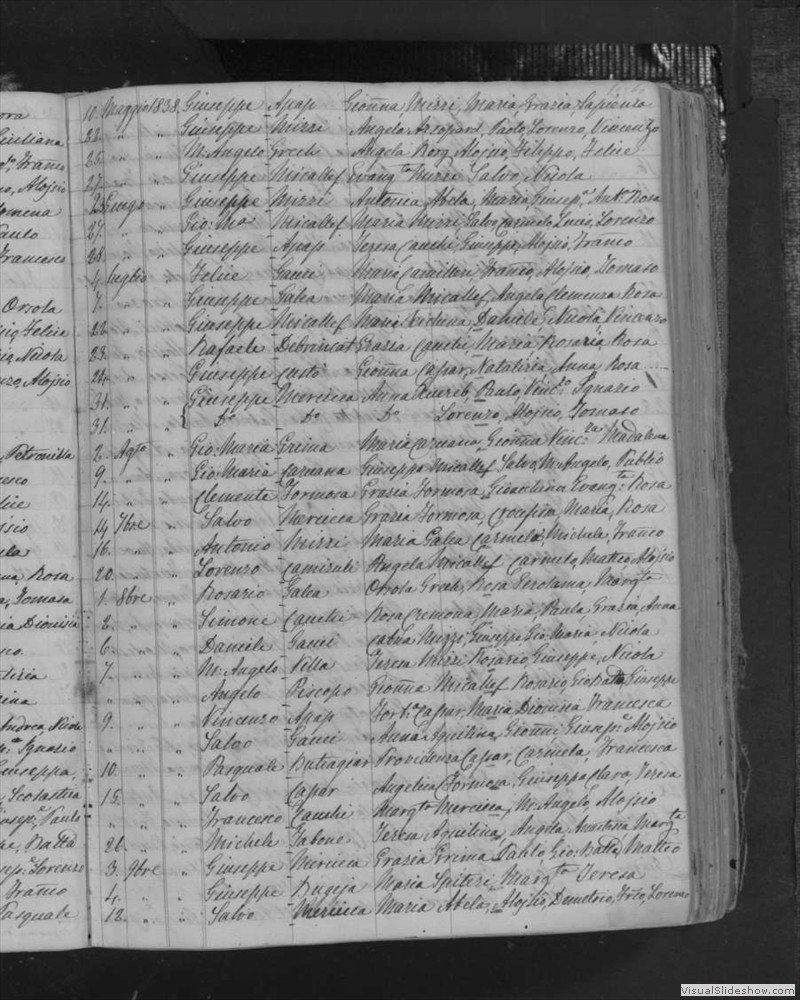 ora
Giuliana
Franco
Alojsio
omena
Paulo
Francesco
Orsola
Felice
Nicola
Alojsio
Petronilla
esco
lice
isio
ula
na Rosa
Tomasa
ia Dionisia
no.
deria
ina
Andrea, Nicola
Ignazio
Giuseppa,
Scolastica
Giusep: Paulo
pe, Batta
sep: Lorenzo
Franco
Pasquale
10. Maggio 1838. Giuseppe Apap Gionna Mizzi, Maria, Grazia, Sapienza
22. " " Giuseppe Mizzi Angela Azzopard, Paolo, Lorenzo, Vincenzo
25. " " M: Angelo Grech Angela Borg, Alojsio, Filippo, Felice
27. " " Giuseppe Micallef Evangta Mizzi Salvo Nicola
Giugo " Giuseppe Mizzi Antonia Abela, Maria Giusepa Anta Rosa
27. " " Gio: Ma Micallef Maria Mizzi, Salvo, Carmelo, Lucio, Lorenzo
28. " " Giuseppe Apap Teresa Cauchi, Giuseppe, Alojsio, Franco
4. Luglio " Felice Gauci Maria Camilleri, Franco, Alojsio, Tomaso
7. " " Giuseppe Galea Maria Micallef, Angela, Clemenza Rosa
22. " " Giuseppe Micallef Maria Daniele, Nicola Vincenzo
23. " " Rafaele Debrincat Grazia Cauchi, Maria Rosaria, Rosa
24. " " Giuseppe Custo Gionna Capar, Natalizia Anna Rosa
31. " " Giuseppe Mercieca Anna Xuereb, Paulo, Vinco Ignazio
31. " " { Do Do Do Lorenzo, Alojsio, Tomaso
2. Agto " Gio: Maria Grima Maria Caruana, Gionna Vincza Madalena
9. " " Gio: Maria Caruana Giuseppa Micallef, Salvo, M: Angelo, Publio
14. " " Clemente Formosa Grazia Formosa, Evangta Rosa
14. 7bre " Salvo Mercieca Grazia Formosa, Crocifisa, Maria, Rosa
16. " " Antonio Mizzi Maria Galea Carmelo, Michele, Franco
20. " " Lorenzo Camizuli Angela Micallef Carmelo, Matteo, Alojsio
1. 8bre " Rosario Galea Orsola Grech, Rosa Gerolama, Margta
2. " " Simone Cauchi Rosa Cremona, Maria, Paula, Grazia, Anna
6. " " Daniele Gauci Catna Mizzi, Giuseppe, Gio: Maria, Nicola
7. " " M: Angelo Vella Teresa Mizzi Rosario, Giuseppe, Nicola
" " " Angelo Piscopo Gionna Micallef Rosario, Gio Batta, Giuseppe
9. " " Vincenzo Apap Capar, Maria Dionina Francesca
" " " Salvo Gauci Anna Aquilina, Gionni, Giusepe Alojsio
10. " " Pasquale Butiagiar Providenza Capar, Carmela, Francesca
15. " " Salvo Capar Angelica Formosa, Giuseppa, Clara, Teresa
" " " Francesco Cauchi Margta Mercieca, M: Angelo, Alojsio
26. " " Michele Tabone Teresa Aquilina, Angela Anastasia Margta
3. 9bre " Giuseppe Mercieca Grazia Grima Pablo, Gio: Batta, Matteo
4. " " Giuseppe Bugeja Maria Spiteri, Margta Teresa
12. " " Salvo Mercieca Maria Abela, Alojsio, Demetrio, Lorenzo
VisualSlideshow.com